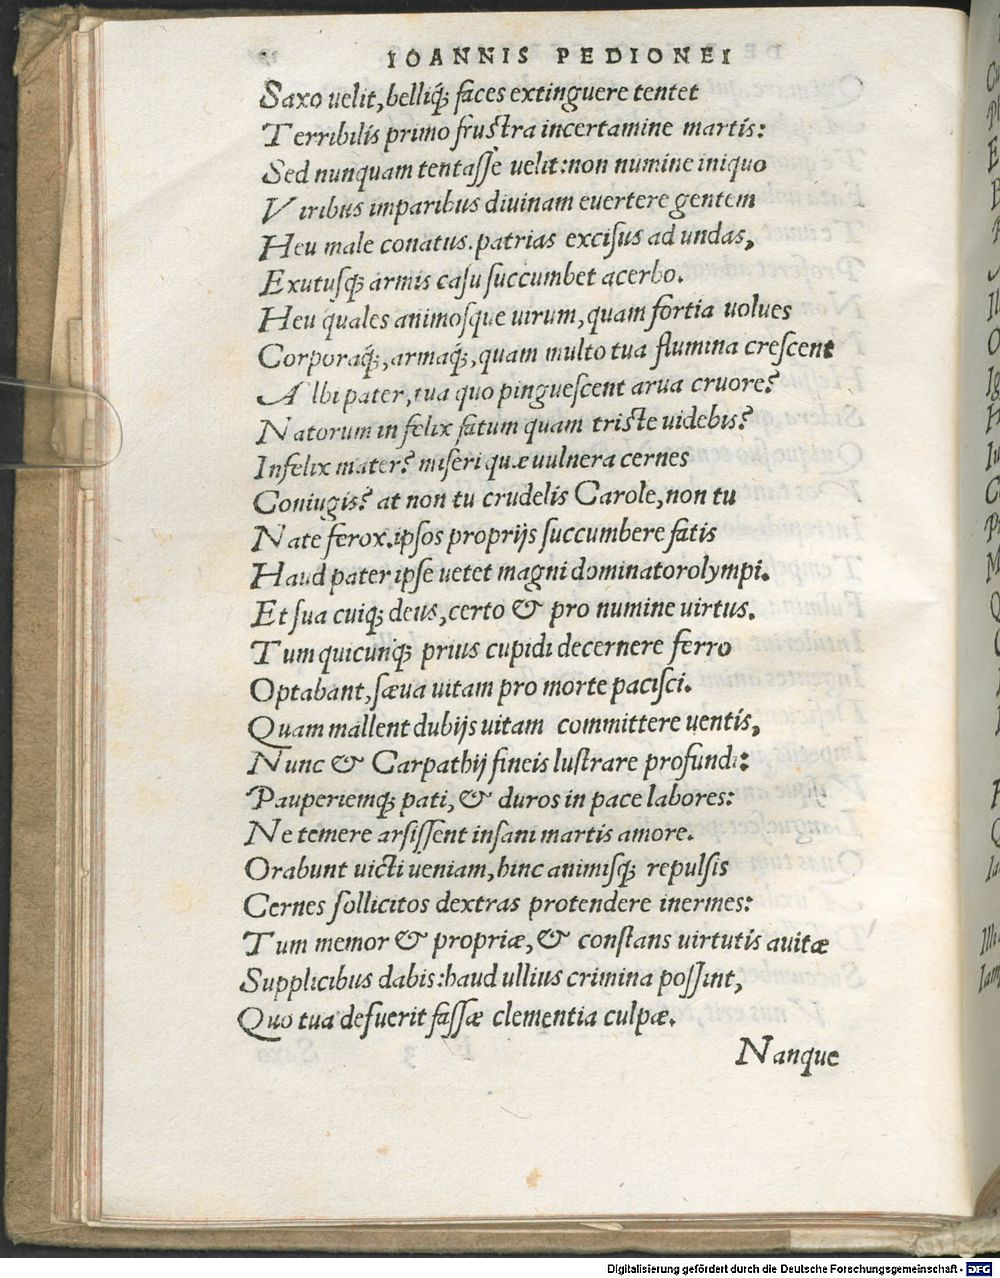 IOANNIS PEDIONEI
Saxo uelit, belliq́; faces extinguere tentet
Terribilis primo frustra incertamine martis:
Sed nunquam tentasse uelit: non numine iniquo
Viribus imparibus diuinam euertere gentem
Heu male conatus. patrias excisus ad undas,
Exutusq́; armis casu succumbet acerbo.
Heu quales animosque uirum, quam fortia uolues
Corporaq́;, armaq́;, quam multo tua flumina crescent
Albi pater, tua quo pinguescent arua cruore?
Natorum infelix fatum quam triste uidebis?
Infelix mater? miseri quæ uulnera cernes
Coniugis? at non tu crudelis Carole, non tu
Nate ferox. ipsos proprijs succumbere fatis
Haud pater ipse uetet magni dominator olympi.
Et sua cuiq; deus, certo & pro numine uirtus.
Tum quicunq́; prius cupidi decernere ferro
Optabant, sæua uitam pro morte pacisci.
Quam mallent dubijs uitam committere uentis,
Nunc & Carpathij fineis lustrare profundi:
Pauperiemq́; pati, & duros in pace labores:
Ne temere arsissent insani martis amore.
Orabunt uicti ueniam, hinc animisq́; repulsis
Cernes sollicitos dextras protendere inermes:
Tum memor & propriæ, & constans uirtutis auitæ
Supplicibus dabis: haud ullius crimina possint,
Quo tua defuerit fassæ clementia culpæ.
Nanque
Digitalisierung gefördert durch die Deutsche Forschungsgemeinschaft - DFG